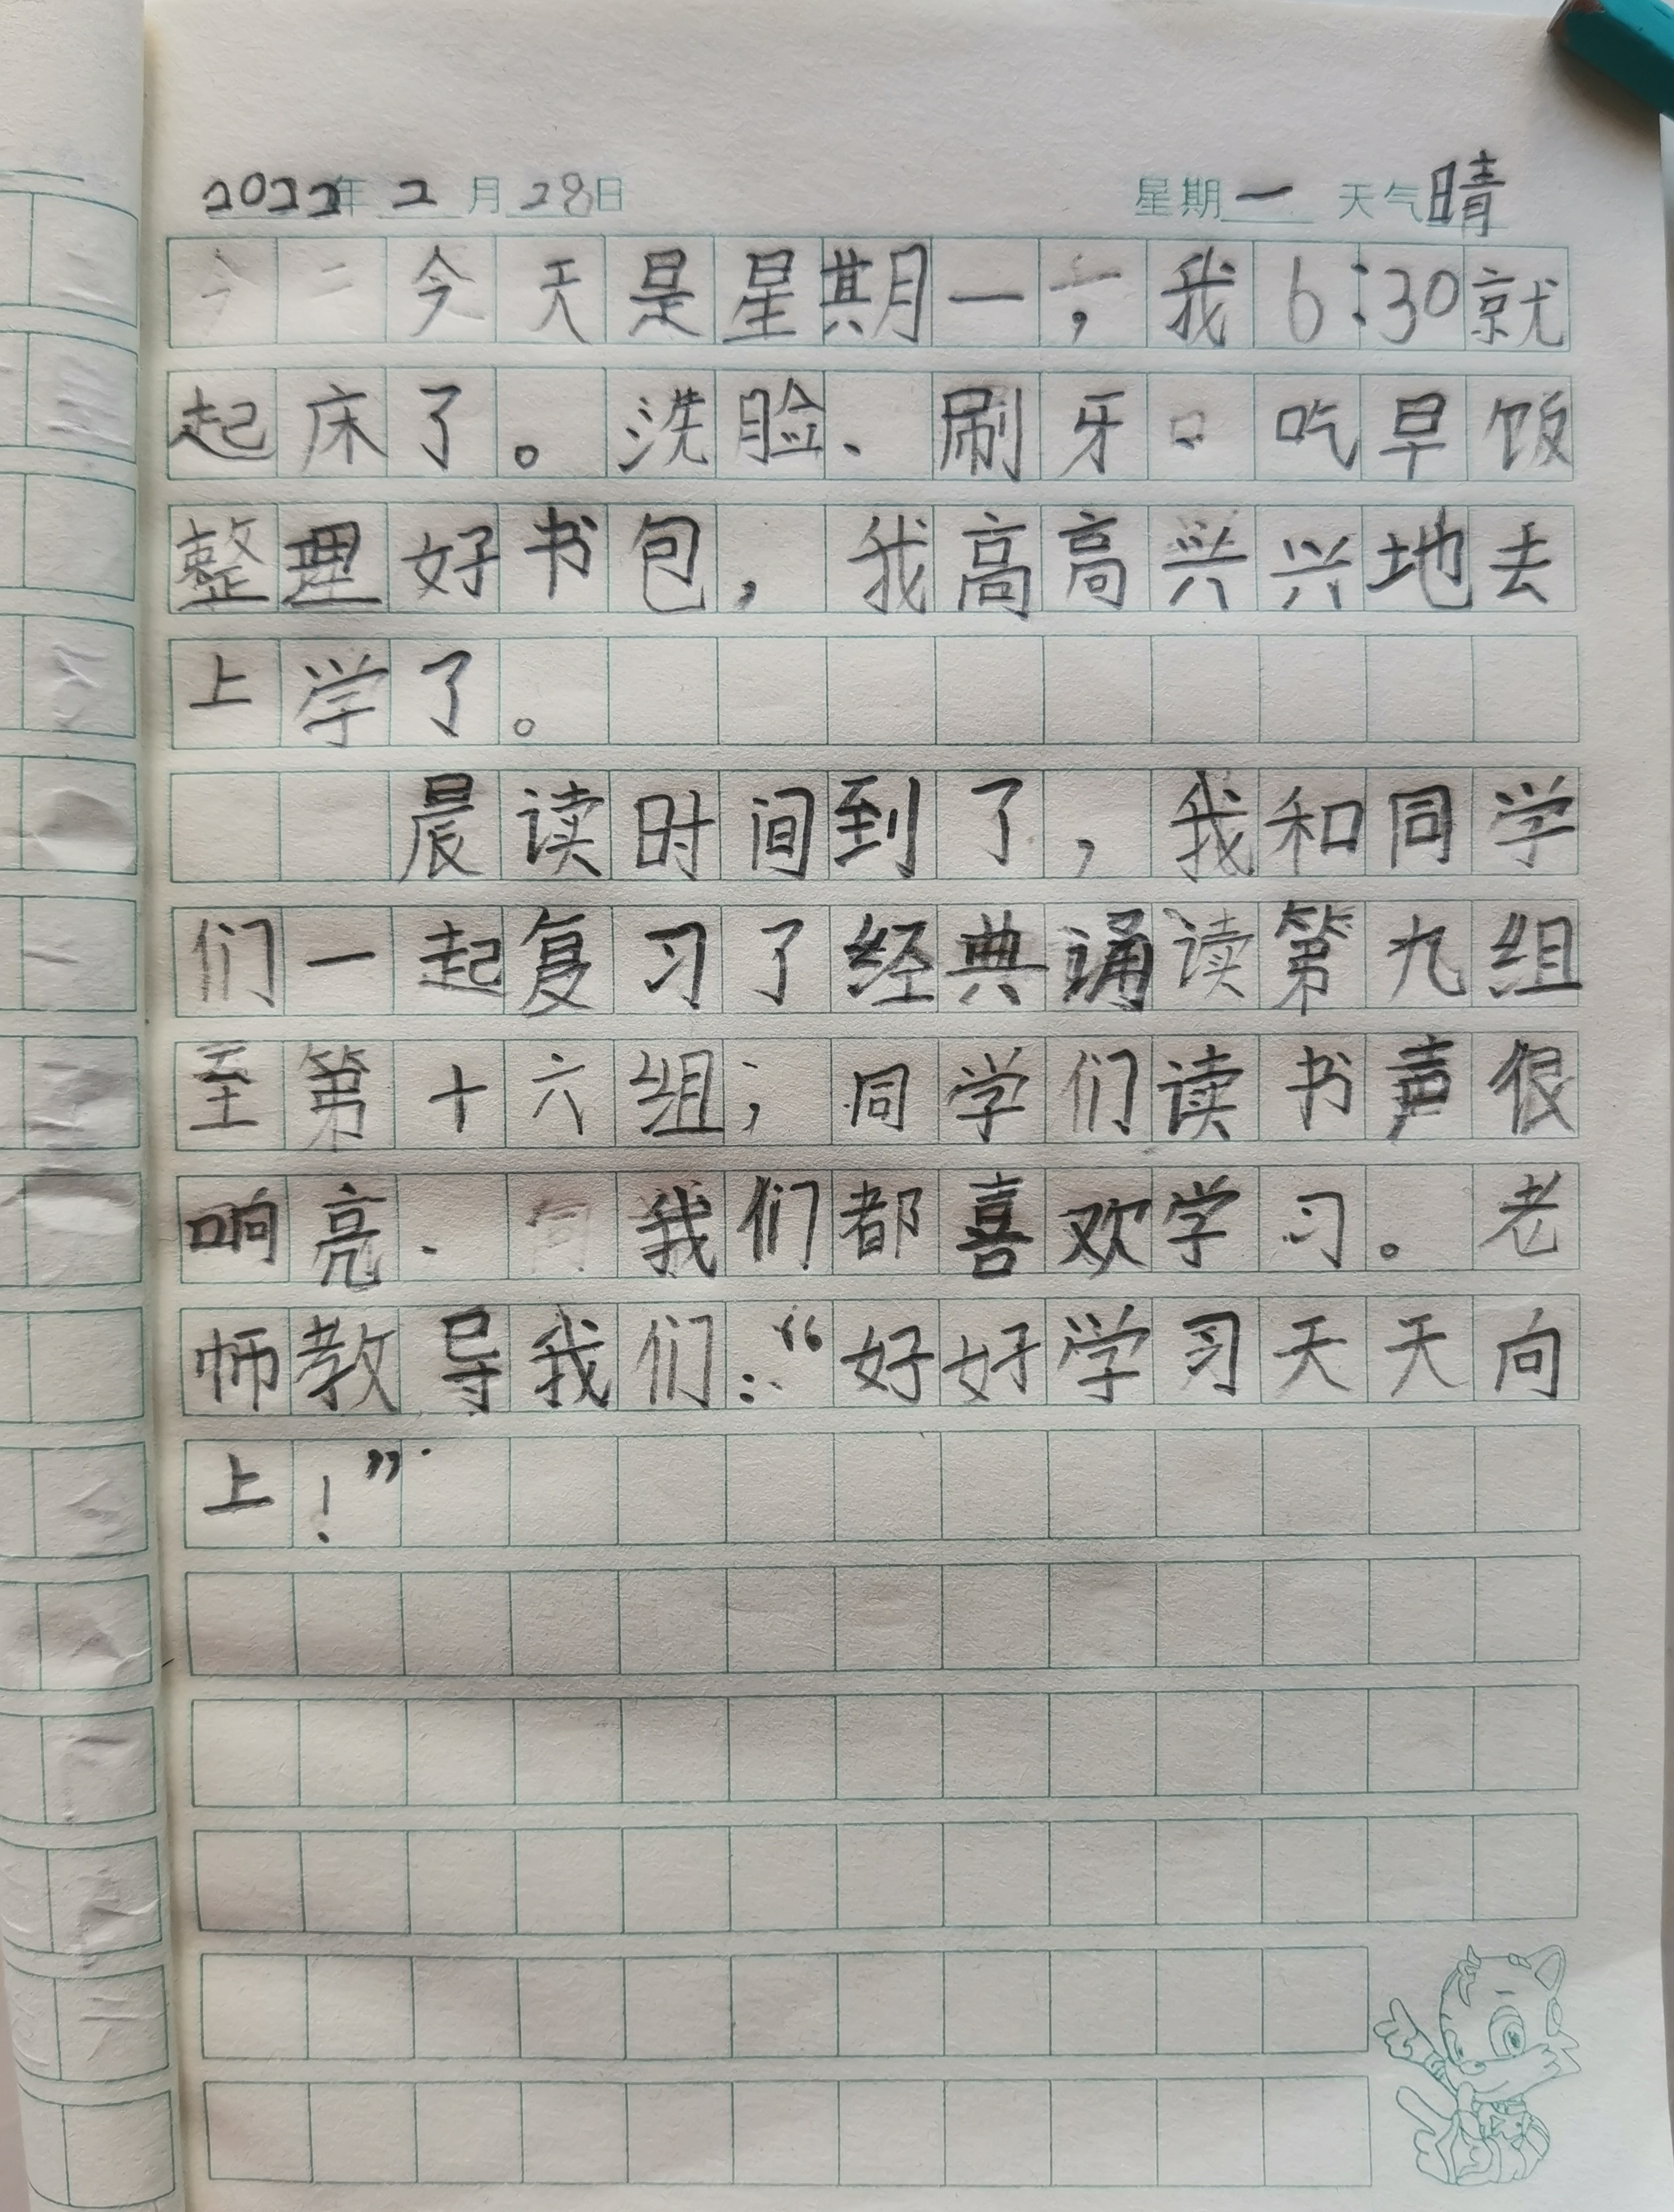 2022年2月28日 星期一 天气晴
今天是星期一，我6:30就
起床了。洗脸、刷牙 吃早饭
整理好书包，我高高兴兴地去
上学了。
晨读时间到了，我和同学
们一起复习了经典诵读第九组
至第十六组；同学们读书声很
响亮、我们都喜欢学习。老
师教导我们：“好好学习天天向
上！”